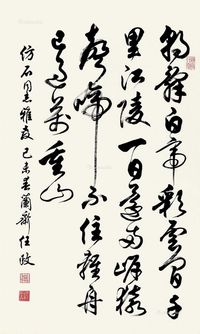 朝辭白帝彩雲間千
里江陵一日還兩岸猿
聲啼不住輕舟
已過萬重山
仿石同志雅教 己未春蘭齋任政